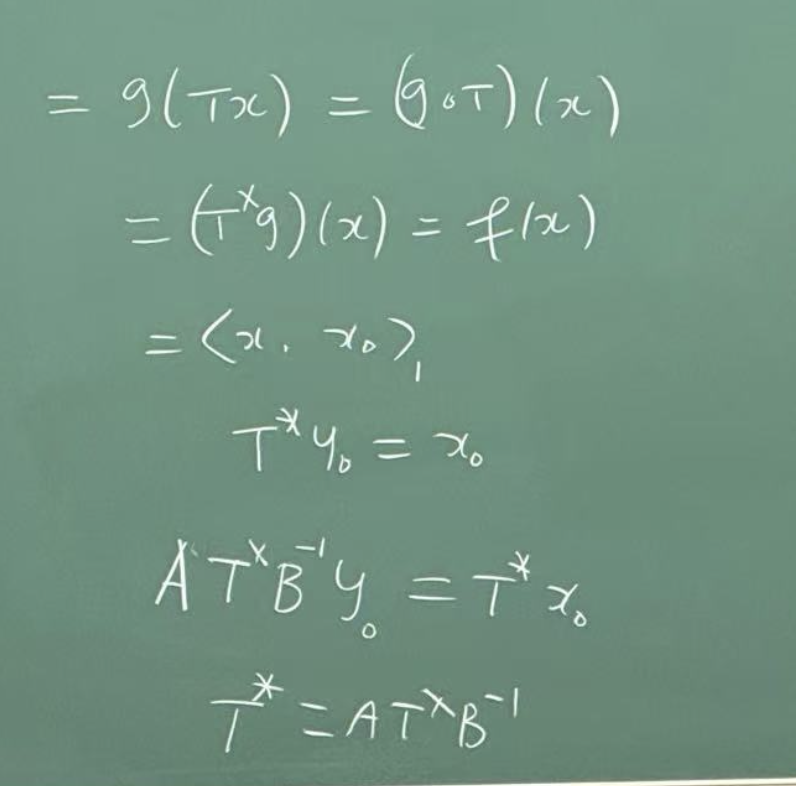 = g(Tx) = (g∘T)(x)
= (T^x g)(x) = f(x)
= ⟨x, x₀⟩₁
T^* y₀ = x₀
A T^x B^{-1} y₀ = T^* x₀
T^* = A T^x B^{-1}